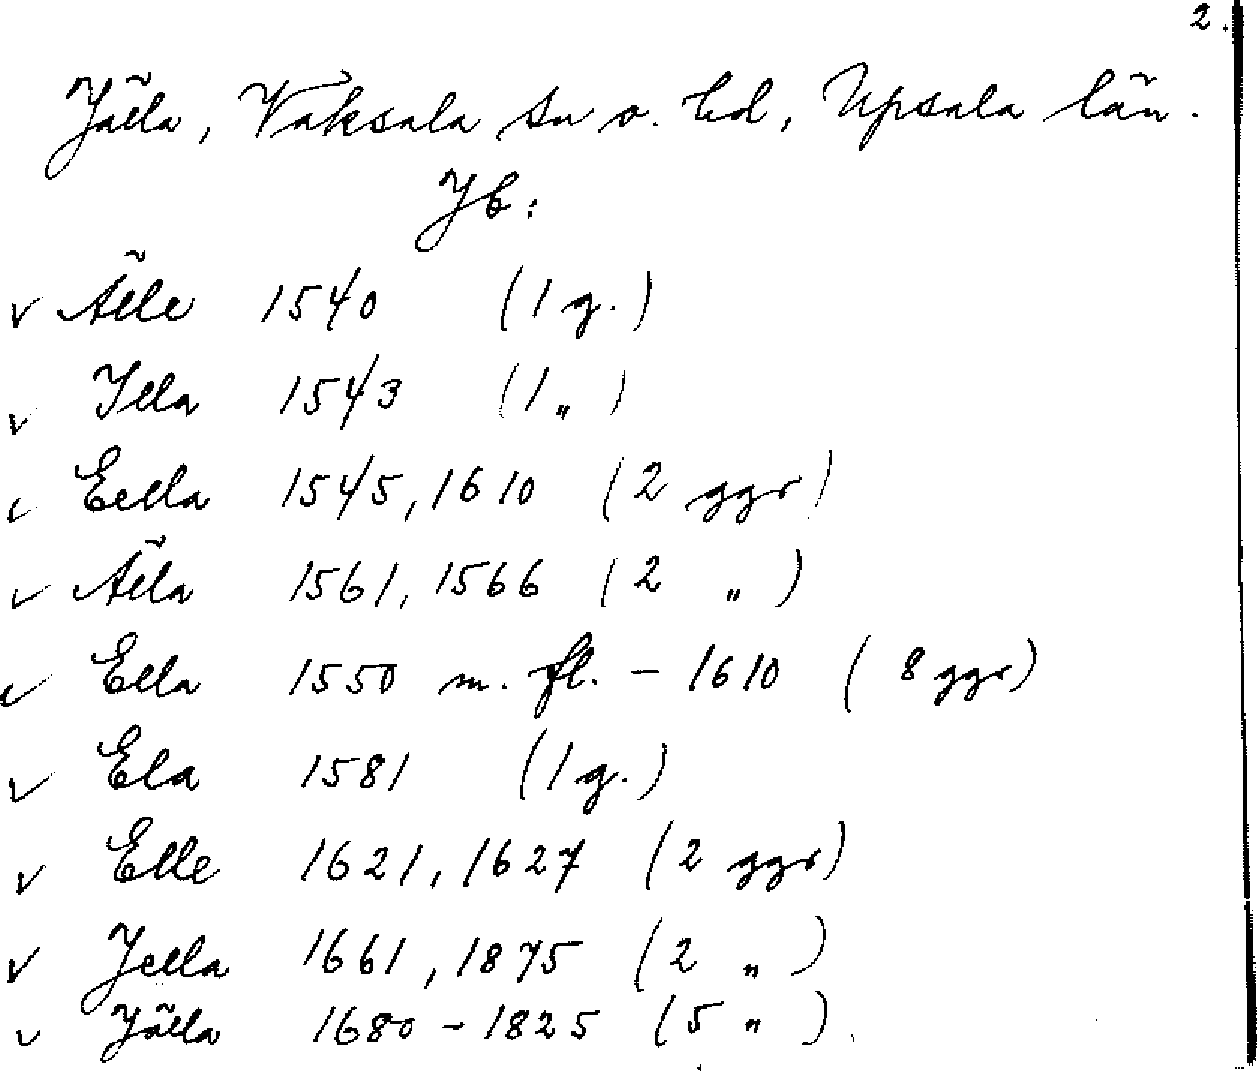 2.
Jälla, Vaksala sn o. hd, Upsala län.
Jb:
v Älle 1540 (1 g.)
v Iella 1543 (1 „ )
v Eella 1545, 1610 (2 ggr)
v Älla 1561, 1566 (2 „ )
v Ella 1550 m. fl. - 1610 ( 8 ggr)
v Ela 1581 (1 g.)
v Elle 1621, 1627 (2 ggr)
v Jella 1661, 1875 (2 „ )
v Jälla 1680 - 1825 (5 „ ).